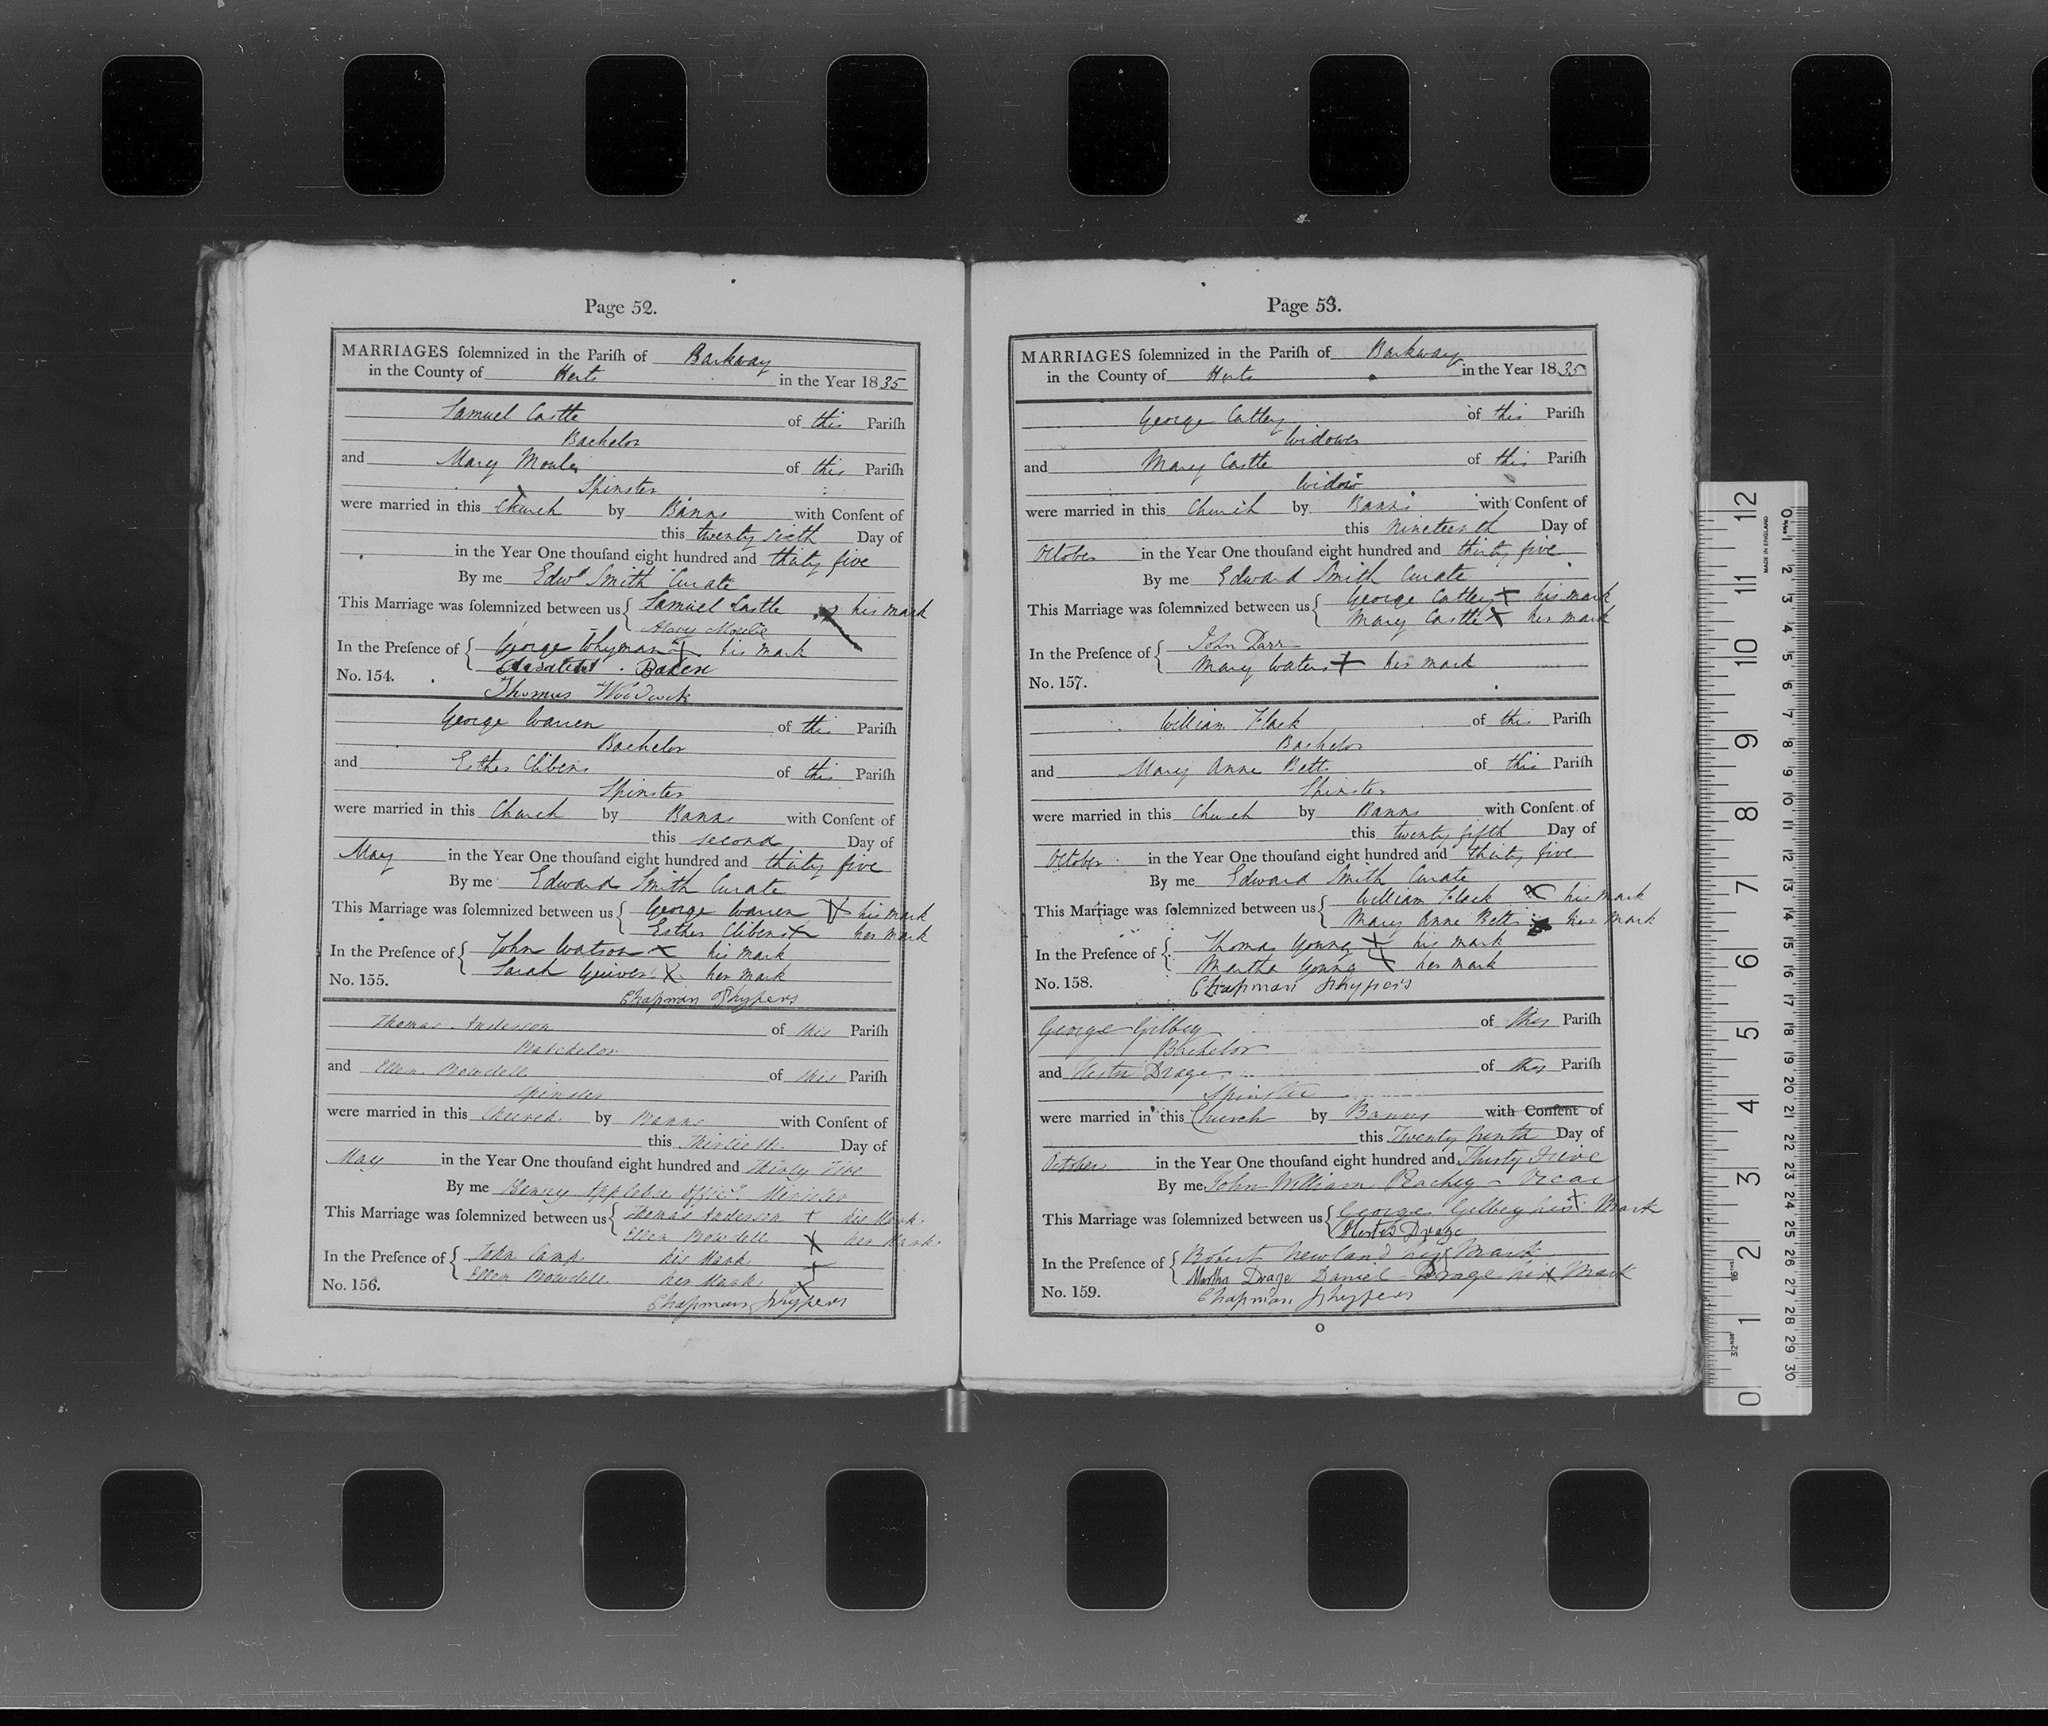 Page 52.
MARRIAGES ſolemnized in the Pariſh of Barkway
in the County of Herts in the Year 1835
Samuel Castle of this Pariſh
Bachelor
and Mary of this Pariſh
Spinster
were married in this Church by Banns with Conſent of
this twenty sixth Day of
in the Year One thouſand eight hundred and thirty five
By me Edwd Smith Curate
This Marriage was ſolemnized between us { Samuel Castle his mark
Mary
In the Preſence of { George Whyman + his mark
Baken
No. 154.
Thomas
George Warren of this Pariſh
Bachelor
and Esther Clibens of this Pariſh
Spinster
were married in this Church by Banns with Conſent of
this second Day of
May in the Year One thouſand eight hundred and thirty five
By me Edward Smith Curate
This Marriage was ſolemnized between us { George Warren X his mark
Esther Clibens X her mark
In the Preſence of { John Watson X his mark
Sarah Guiver X her mark
No. 155.
Chapman Phypers
Thomas Anderson of this Pariſh
Batchelor
and Ellen Bowdell of this Pariſh
Spinster
were married in this Church by Banns with Conſent of
this Thirtieth Day of
May in the Year One thouſand eight hundred and Thirty Five
By me Henry Applebee Minister
This Marriage was ſolemnized between us { Thomas Anderson + his Mark
Ellen Bowdell X her Mark
In the Preſence of { John Camp his Mark +
Ellen Bowdell her Mark X
No. 156.
Chapman Phypers
Page 53.
MARRIAGES ſolemnized in the Pariſh of Barkway
in the County of Herts in the Year 1835
George Cattey of this Pariſh
Widower
and Mary Castle of this Pariſh
Widow
were married in this Church by Banns with Conſent of
this nineteenth Day of
October in the Year One thouſand eight hundred and thirty five
By me Edward Smith Curate
This Marriage was ſolemnized between us { George Cattey + his mark
Mary Castle X her mark
In the Preſence of { John Darr
Mary Waters + her mark
No. 157.
William Flack of this Pariſh
Bachelor
and Mary Anne Betts of this Pariſh
Spinster
were married in this Church by Banns with Conſent of
this twenty fifth Day of
October in the Year One thouſand eight hundred and thirty five
By me Edward Smith Curate
This Marriage was ſolemnized between us { William Flack X his mark
Mary Anne Betts X her mark
In the Preſence of { Thomas Young + his mark
Martha Young + her mark
No. 158.
Chapman Phypers
George Gilbey of this Pariſh
Bachelor
and Hester Drage of this Pariſh
Spinster
were married in this Church by Banns with Conſent of
this Twenty Ninth Day of
October in the Year One thouſand eight hundred and Thirty Five
By me John William Vicar
This Marriage was ſolemnized between us { George Gilbey his X Mark
Hester Drage
In the Preſence of { Robert Newland his Mark
Martha Drage Daniel Drage his X Mark
No. 159.
Chapman Phypers
O
MADE IN ENGLAND